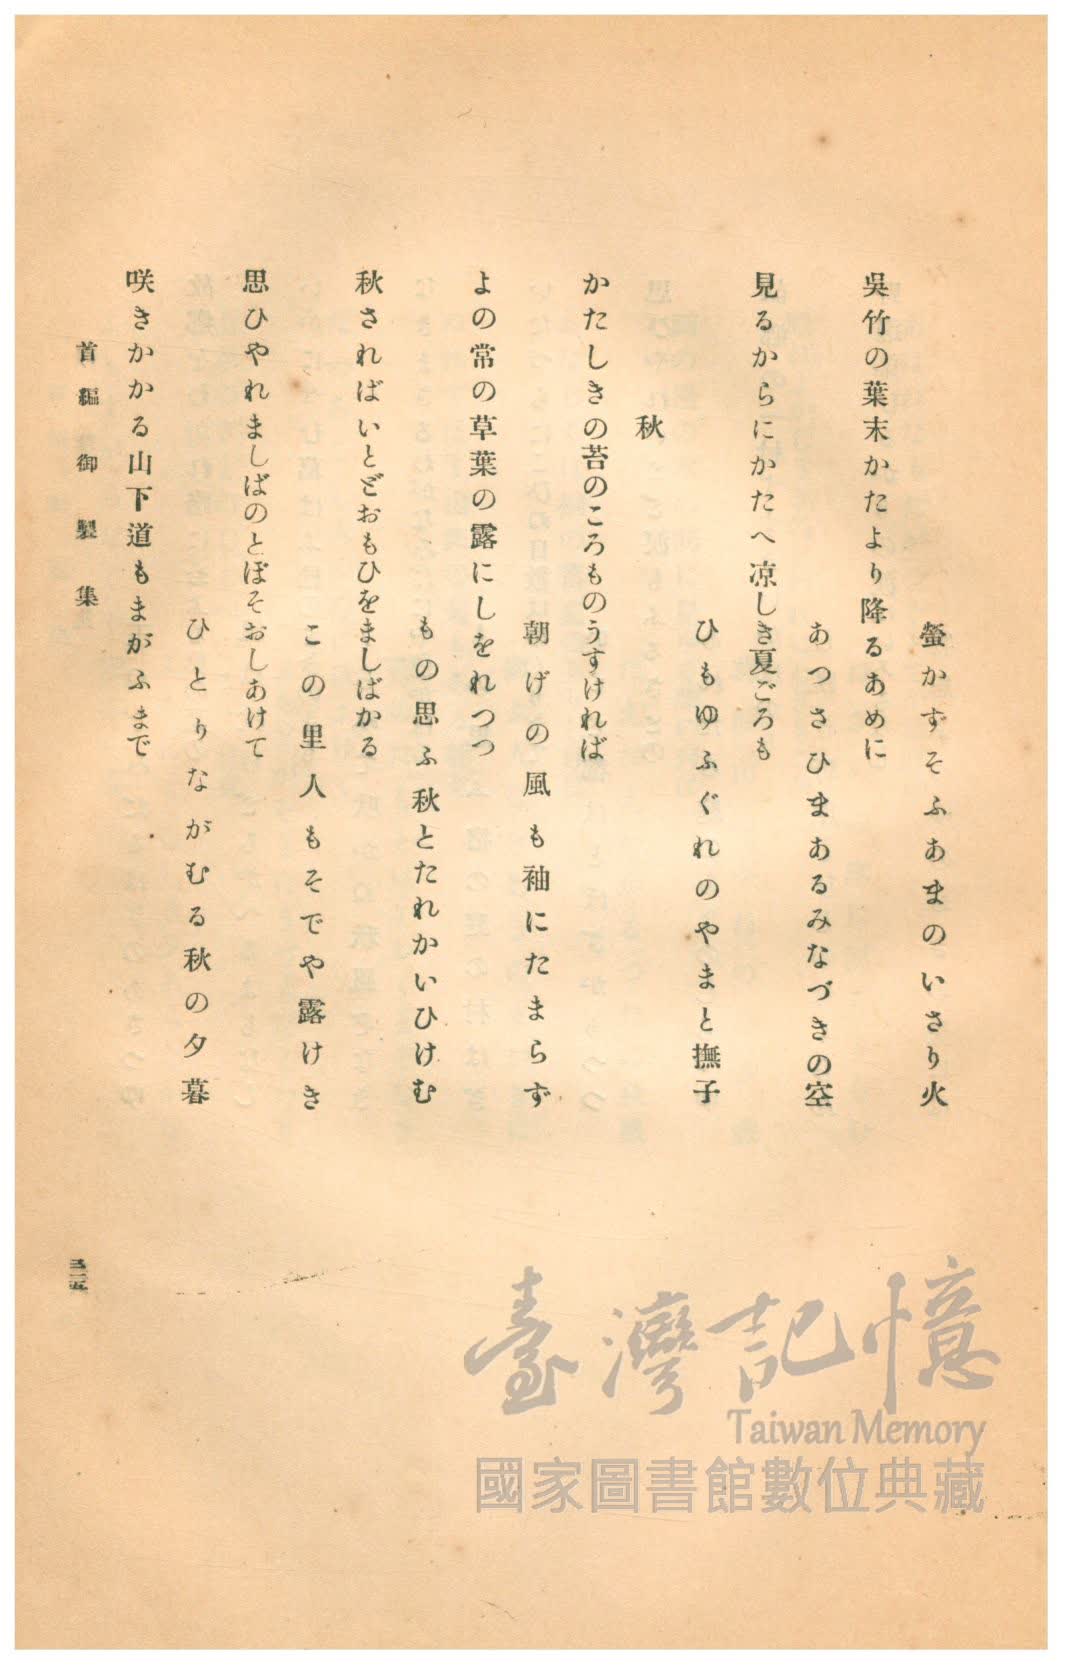 螢かずそふあまのいさり火
呉竹の葉末かたより降るあめに
あつさひまあるみなづきの空
見るからにかたへ凉しき夏ごろも
ひもゆふぐれのやまと撫子
秋
かたしきの苔のころものうすければ
朝げの風も袖にたまらず
よの常の草葉の露にしをれつつ
もの思ふ秋とたれかいひけむ
秋さればいとゞおもひをましばかる
この里人もそでや露けき
思ひやれましばのとぼそおしあけて
ひとりながむる秋の夕暮
咲きかかる山下道もまがふまで
首編御製集
三五
臺灣記憶
Taiwan Memory
國家圖書館數位典藏